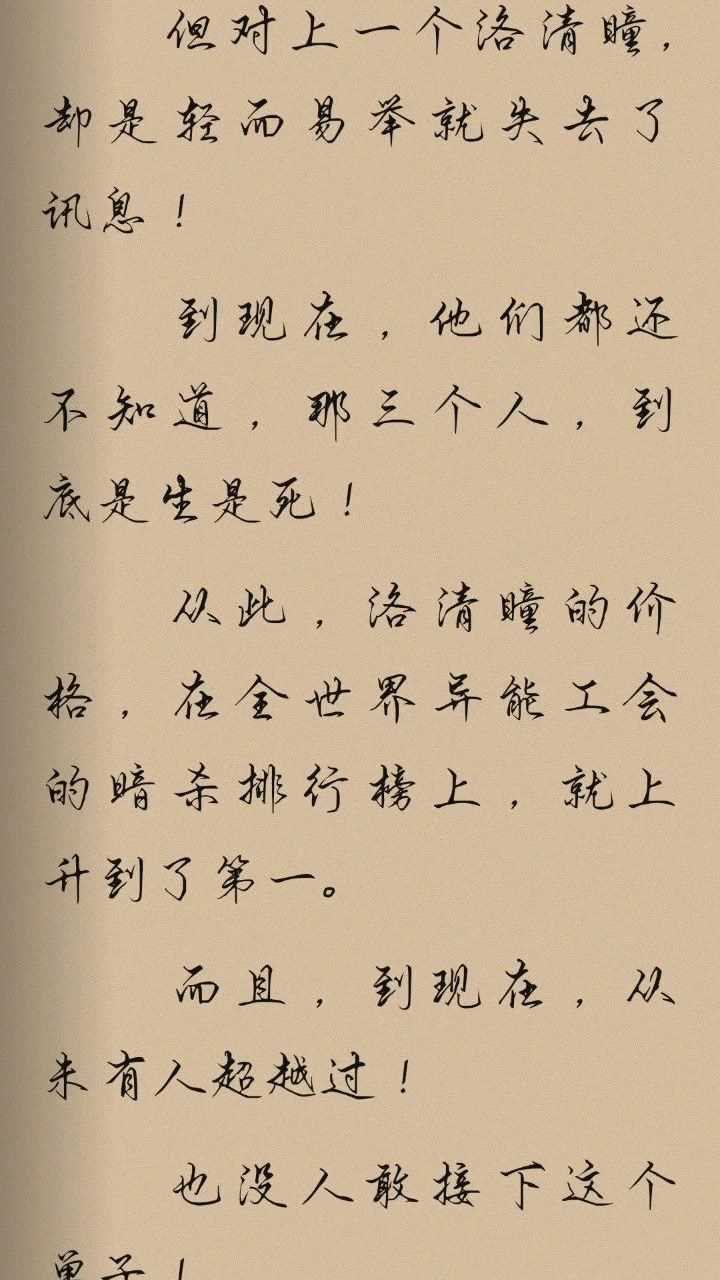 但对上一个洛清瞳，
却是轻而易举就失去了
讯息！
到现在，他们都还
不知道，那三个人，到
底是生是死！
从此，洛清瞳的价
格，在全世界异能工会
的暗杀排行榜上，就上
升到了第一。
而且，到现在，从
未有人超越过！
也没人敢接下这个
单子！